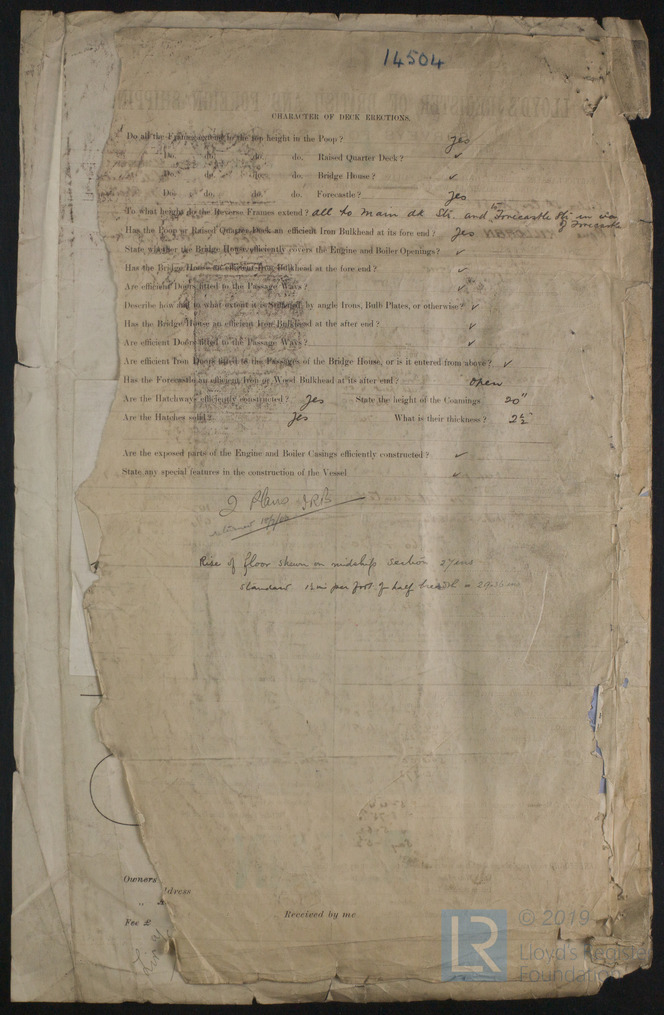 14504
CHARACTER OF DECK ERECTIONS.
Do all the Frames extend to the top height in the Poop? Yes
Do. do. do. do. Raised Quarter Deck? ✓
Do. do. do. do. Bridge House? ✓
Do. do. do. do. Forecastle? Yes
To what height do the Reverse Frames extend? All to Main dk Str. and to Forecastle Str in way of Forecastle
Has the Poop or Raised Quarter Deck an efficient Iron Bulkhead at its fore end? Yes
State whether the Bridge House efficiently covers the Engine and Boiler Openings? ✓
Has the Bridge House an efficient Iron Bulkhead at the fore end? ✓
Are efficient Doors fitted to the Passage Ways? ✓
Describe how and to what extent it is Stiffened by angle Irons, Bulb Plates, or otherwise? ✓
Has the Bridge House an efficient Iron Bulkhead at the after end? ✓
Are efficient Doors fitted to the Passage Ways? ✓
Are efficient Iron Doors fitted to the Passages of the Bridge House, or is it entered from above? ✓
Has the Forecastle an efficient Iron or Wood Bulkhead at its after end? Open
Are the Hatchways efficiently constructed? Yes State the height of the Coamings 20"
Are the Hatches solid? Yes What is their thickness? 2½"
Are the exposed parts of the Engine and Boiler Casings efficiently constructed? ✓
State any special features in the construction of the Vessel ✓
2 Plans
Rise of floor shewn on midship section
Standard 1½ in per foot of half breadth =
Owners
Address
" £
Fee £
Received by me
LR
© 2019
Lloyd's Register
Foundation